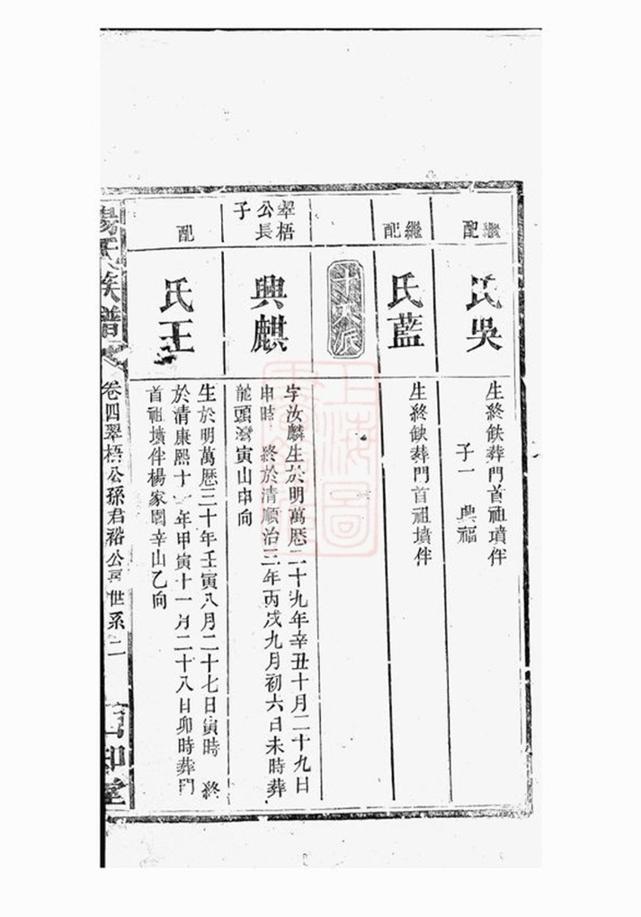 繼配
氏吳
生終缺葬門首祖墳伴
子一 興福
繼配
氏藍
生終缺葬門首祖墳伴
翠梧公長子
興麒
字汝麟生於明萬歷二十九年辛丑十月二十九日
申時 終於清順治三年丙戌九月初六日未時葬
龍頭灣寅山申向
配
氏王
生於明萬歷三十年壬寅八月二十七日寅時 終
於清康熙十 年甲寅十一月二十八日卯時葬門
首祖墳伴楊家園辛山乙向
楊氏族譜
卷四翠梧公孫君裕公房世系 二